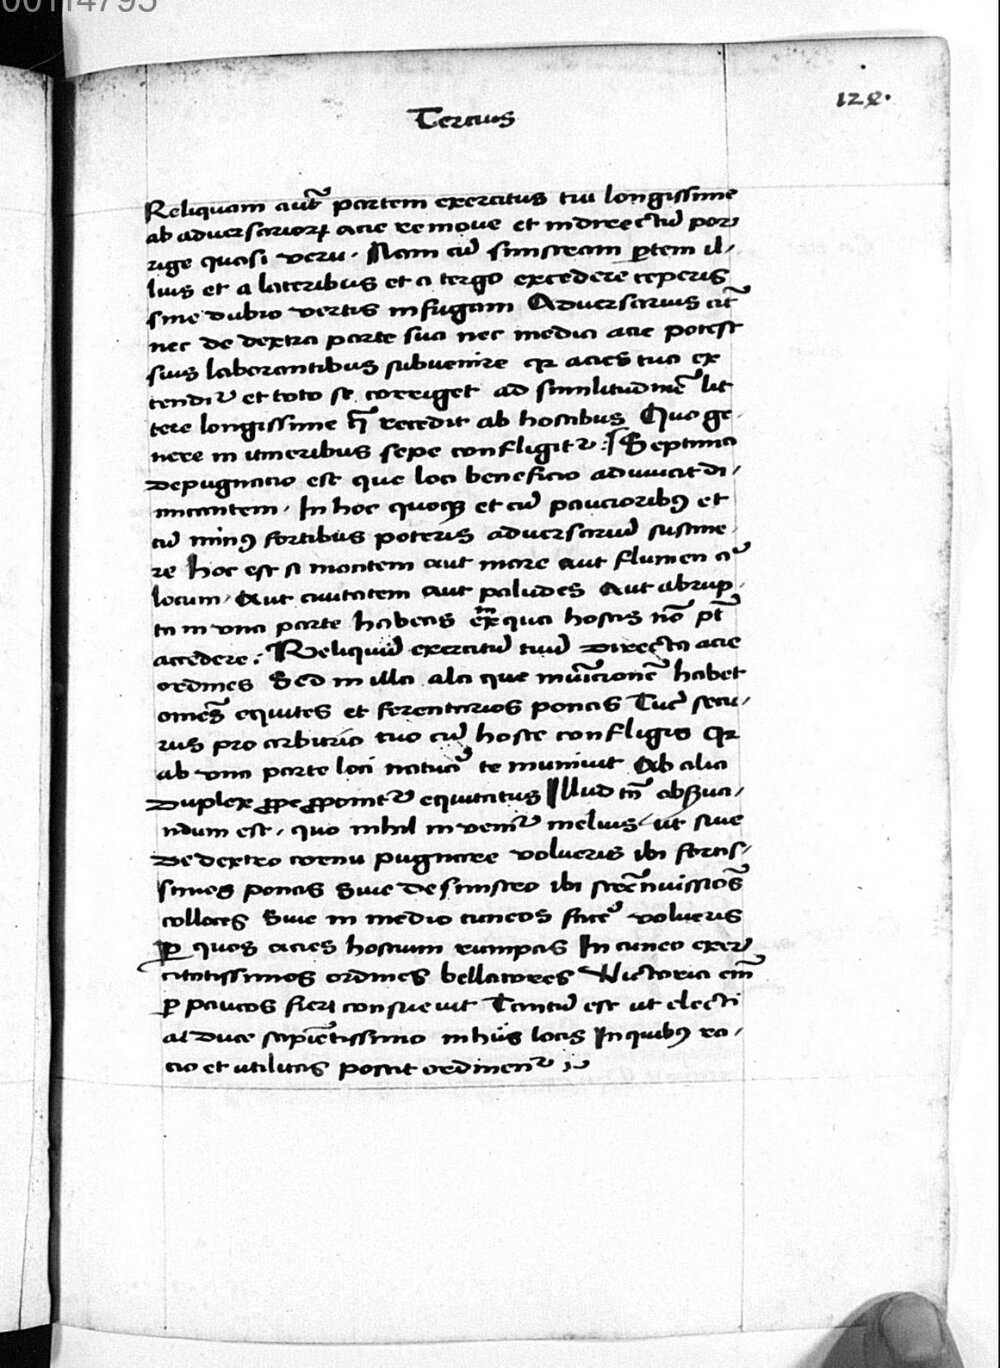 00114795
128.
Tercius
Reliquam aut̃ partem exercitus tui longissime
ab aduersarioꝝ acie remoue et indirectũ por
rige quasi veru. Nam cũ sinistram ꝑtem il-
lius et a lateribus et a tergo excedere ceperis
sine dubio vertis in fugam Aduersarius cit̃
nec de dextra parte sua nec media acie potest
suis laborantibus subuenire qꝛ acies tua ex
tendit᷑ et toto se corriget ad similitudinẽ lit
tere longissime qꝫ recedit ab hostibus Quo ge-
nere in itineribus sepe confligit᷑ : Septima
depugnacio est que loci beneficio adiuuat di-
micantem. In hoc quoqꝫ et cũ paucioribꝰ et
cũ minꝰ fortibus poteris aduersariũ sustine-
re hoc est si montem aut mare aut flumen a᷑
locum. Aut ciuitatem aut paludes Aut abrup-
ta in vna parte habeas ex qua hostis nõ pt̃
accedere. Reliquũ exercitũ tuũ directa acie
ordines Sed in illa ala que municionẽ habet
omẽs equites et ferentarios ponas Tuc̃ secu-
rus pro arbitrio tuo cũ hoste confligis qꝛ
ab vna parte loci natura te muniuit Ab alia
duplex ꝓpe ꝓponit᷑ equitatus Illud tñ obẜua-
ndum est. quo nihil inuenit᷑ melius. ut siue
de dextro cornu pugnare volueris ibi fortis-
simos ponas Siue de sinistro ibi strẽnuissiõs
colloces Siue in medio cuneos facẽ volueris
ꝑ quos acies hostium rumpas In cuneo exer
citatissimos ordines bellatores Victoria eiñ
ꝑ paucos fieri consueuit Tantũ est ut electi
a duce sapiẽtissimo in hiis locis In quibꝰ ra-
cio et utilitas poscit ordinent᷑